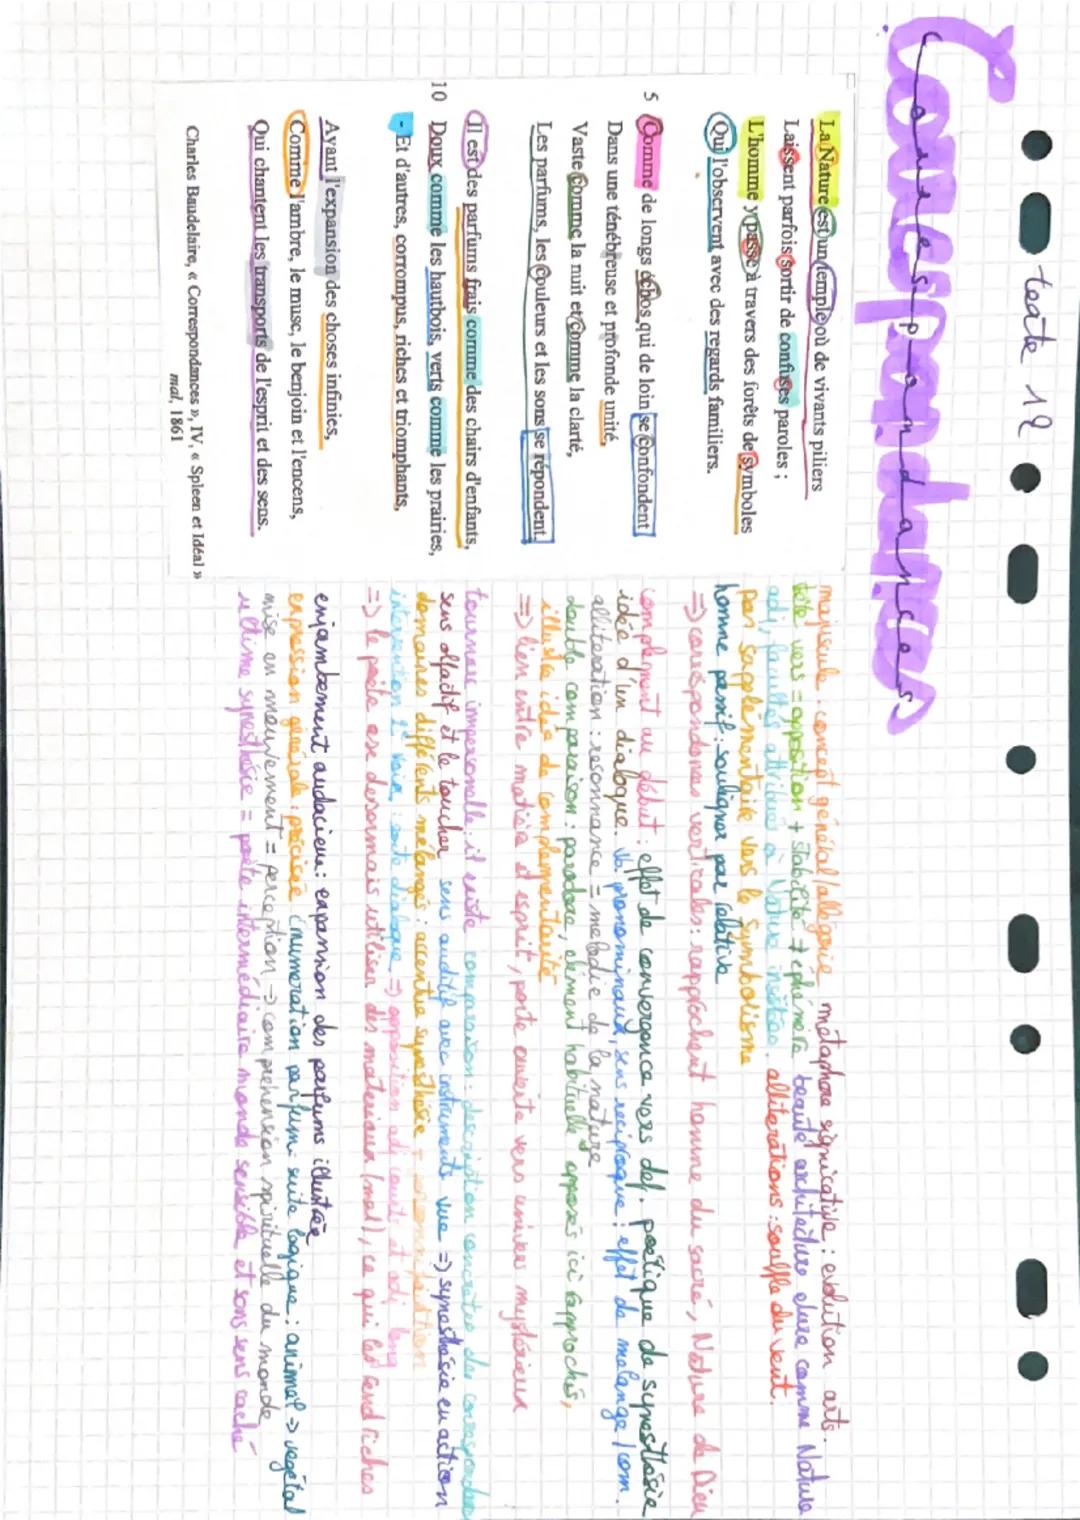 texte 12
Correspondances
La Nature est un temple où de vivants piliers
Laissent parfois sortir de confuses paroles ;
L'homme y passe à travers des forêts de symboles
Qui l'observent avec des regards familiers.
5 Comme de longs échos qui de loin se confondent
Dans une ténébreuse et profonde unité,
Vaste comme la nuit et comme la clarté,
Les parfums, les couleurs et les sons se répondent.
Il est des parfums frais comme des chairs d'enfants,
10 Doux comme les hautbois, verts comme les prairies,
- Et d'autres, corrompus, riches et triomphants,
Ayant l'expansion des choses infinies,
Comme l'ambre, le musc, le benjoin et l'encens,
Qui chantent les transports de l'esprit et des sens.
Charles Baudelaire, « Correspondances », IV, « Spleen et Idéal »
mal, 1861
majuscule : concept général/allégorie métaphore significative : evolution arts.
vers = opposition + stabilité ≠ éphémère beauté architecture dure comme Nature
adj, facultés attribuées à Nature allitérations : souffle du vent.
pas supplémentaire vers le symbolisme
homme passif : souligner par relative
=> correspondances verticales : rapprochent homme du sacré, Nature de Dieu
complément au début : effet de convergence vers def. poétique de synesthésie
idée d'un dialogue. vb pronominaux, sens reciproque : effet de melange / com.
alliteration : resonnance = melodie de la nature
double comparaison : paradoxe, element habituelle opposés ici rapprochés,
illustre idée de complementarité
=> lien entre matière et esprit, porte ouverte vers univers mystérieux
tournure impersonelle : il existe comparaison : description concretes des correspondances
sens olfactif et le toucher sens auditif avec instruments vue => synesthésie en action
domaines différents mélangés : accentue synesthésie
intervention 2e voix : sorte dialogue => opposition adj courts et adj long
=> le poète ose desormais utiliser des materiaux (mal), ce qui les rend riches
enjambement audacieux : expansion des parfums illustrée
expression générale, précisée énumeration parfum : suite logique : animal -> vegétal
mise en mouvement = perception => comprehension spirituelle du monde
ultime synesthésie = poète intermédiaire monde sensible et sons sens caché